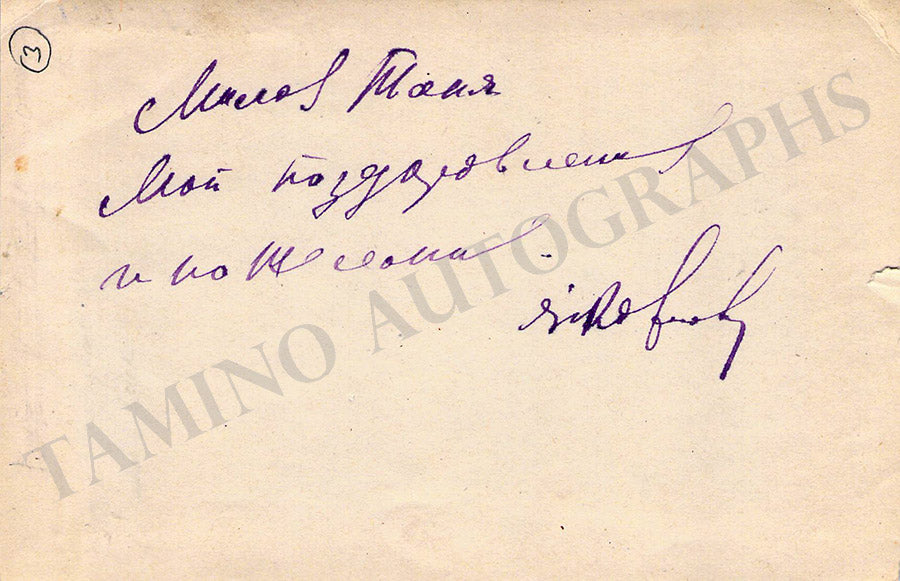 3
Милая Таня
Мои поздравления
и пожелания.
Яковлев
TAMINO AUTOGRAPHS